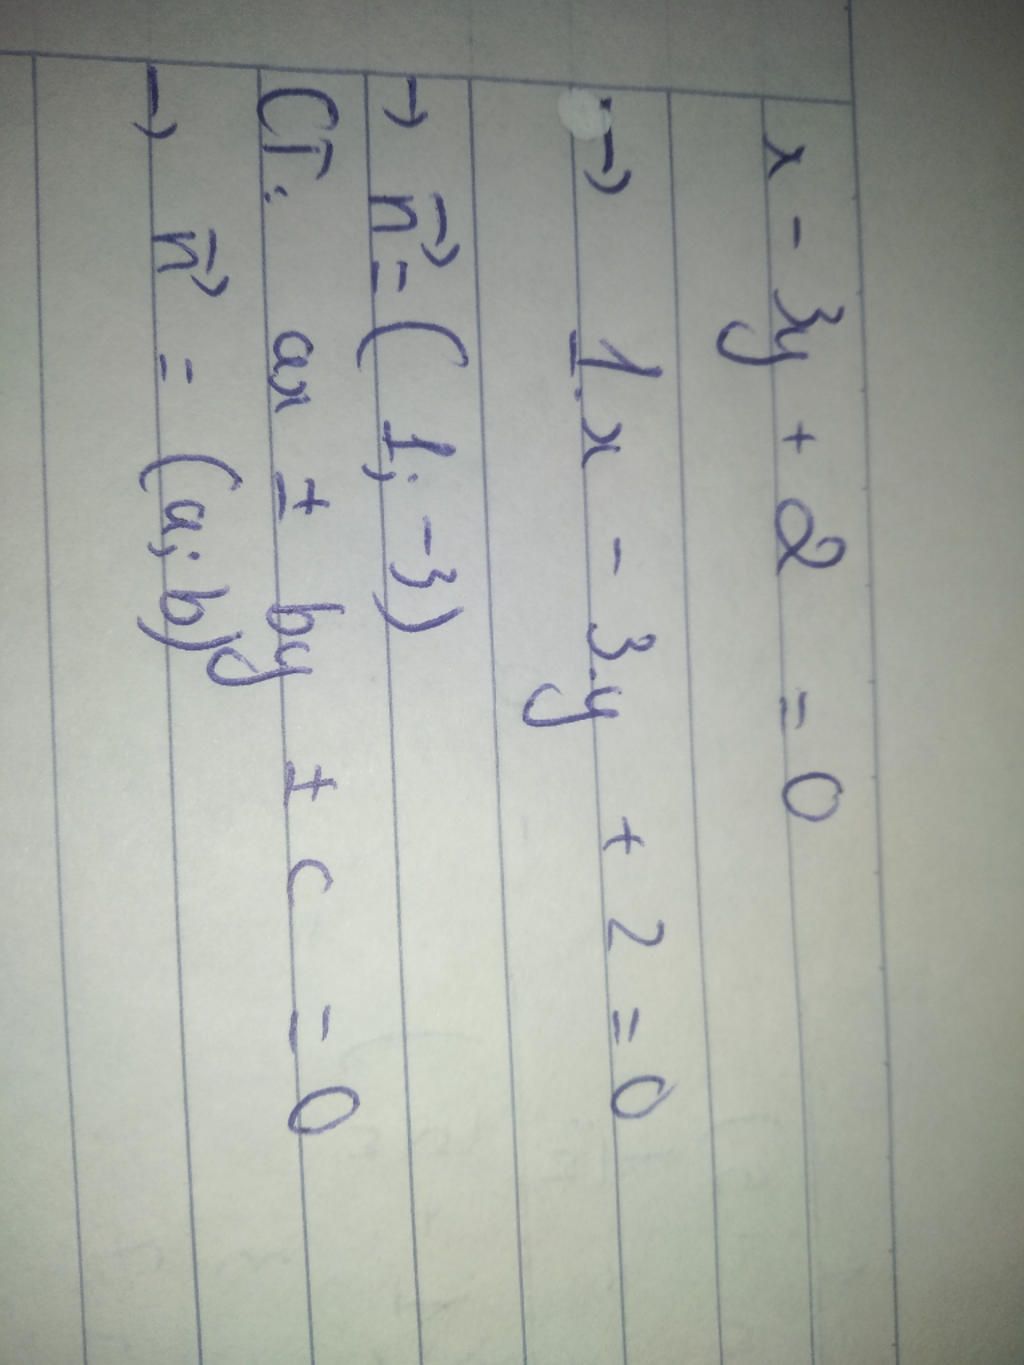 x - 3y + 2 = 0
→ 1.x - 3.y + 2 = 0
→ n⃗ = (1; -3)
CT: ax ± by ± c = 0
→ n⃗ = (a; b)